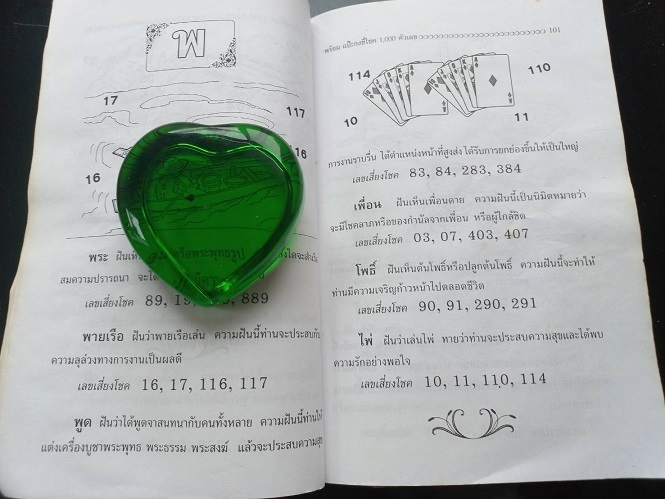 พ
17
117
16
16
พระ ฝันเห็น
สมความปรารถนา จะได้
เลขเสี่ยงโชค 89, 889
พายเรือ ฝันว่าพายเรือเล่น ความฝันนี้ท่านจะประสบกับ
ความลุล่วงทางการงานเป็นผลดี
เลขเสี่ยงโชค 16, 17, 116, 117
พูด ฝันว่าได้พูดจาสนทนากับคนทั้งหลาย ความฝันนี้ท่านให้
แต่งเครื่องบูชาพระพุทธ พระธรรม พระสงฆ์ แล้วจะประสบความสุข
พร้อม แป๊ะกงชี้โชค 1,000 ตัวเลข 101
114
110
10
11
การงานราบรื่น ได้ตำแหน่งหน้าที่สูงส่ง ได้รับการยกย่องขึ้นให้เป็นใหญ่
เลขเสี่ยงโชค 83, 84, 283, 384
เพื่อน ฝันเห็นเพื่อนตาย ความฝันนี้เป็นนิมิตหมายว่า
จะมีโชคลาภหรือของกำนัลจากเพื่อน หรือผู้ใกล้ชิด
เลขเสี่ยงโชค 03, 07, 403, 407
โพธิ์ ฝันเห็นต้นโพธิ์หรือปลูกต้นโพธิ์ ความฝันนี้จะทำให้
ท่านมีความเจริญก้าวหน้าไปตลอดชีวิต
เลขเสี่ยงโชค 90, 91, 290, 291
ไพ่ ฝันว่าเล่นไพ่ ทายว่าท่านจะประสบความสุขและได้พบ
ความรักอย่างพอใจ
เลขเสี่ยงโชค 10, 11, 110, 114